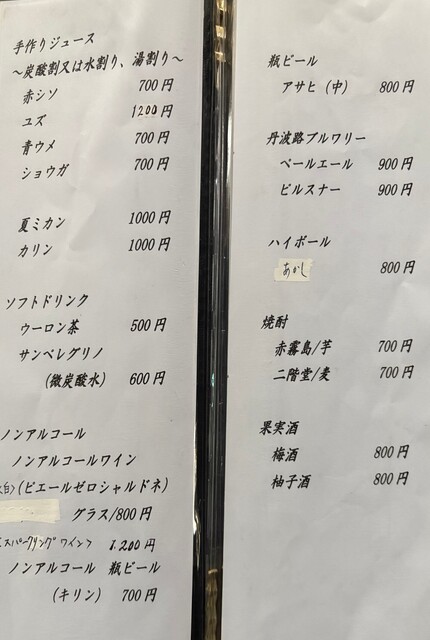 手作りジュース
～炭酸割又は水割り、湯割り～
赤シソ 700円
ユズ 1200円
青ウメ 700円
ショウガ 700円
夏ミカン 1000円
カリン 1000円
ソフトドリンク
ウーロン茶 500円
サンペレグリノ
(微炭酸水) 600円
ノンアルコール
ノンアルコールワイン
白>(ピエールゼロシャルドネ)
グラス/800円
スパークリングワイン> 1,200円
ノンアルコール 瓶ビール
(キリン) 700円
瓶ビール
アサヒ(中) 800円
丹波路ブルワリー
ペールエール 900円
ピルスナー 900円
ハイボール
あかし 800円
焼酎
赤霧島/芋 700円
二階堂/麦 700円
果実酒
梅酒 800円
柚子酒 800円